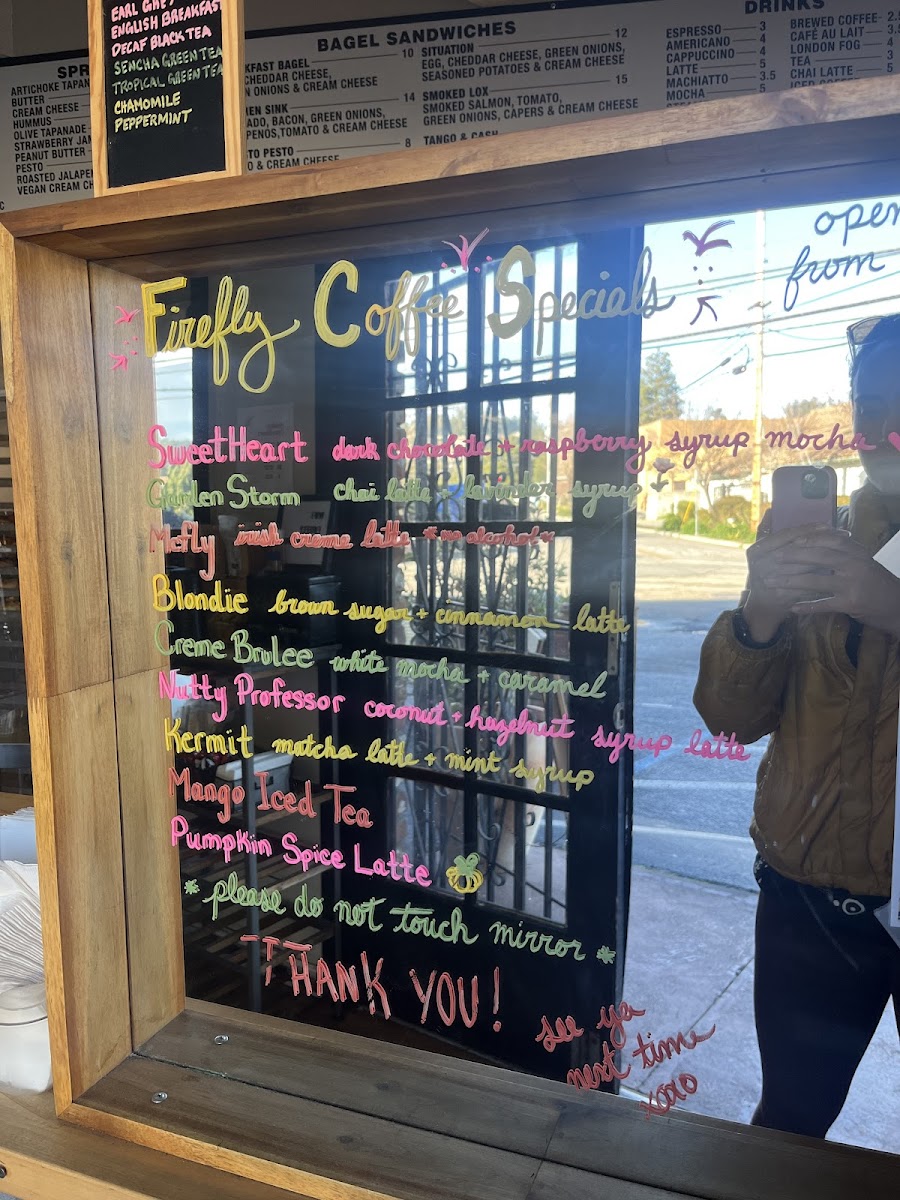 EARL GREY
ENGLISH BREAKFAST
DECAF BLACK TEA
SENCHA GREEN TEA
TROPICAL GREEN TEA
CHAMOMILE
PEPPERMINT
ARTICHOKE
BUTTER
CREAM CHEESE
HUMMUS
OLIVE TAPENADE
STRAWBERRY
PEANUT BUTTER
PESTO
ROASTED
VEGAN CREAM
BAGEL SANDWICHES
BAGEL 10
CHEDDAR CHEESE,
ONIONS & CREAM CHEESE
SINK 14
BACON, GREEN ONIONS,
TOMATO & CREAM CHEESE
PESTO 8
& CREAM CHEESE
SITUATION 12
EGG, CHEDDAR CHEESE, GREEN ONIONS,
SEASONED POTATOES & CREAM CHEESE
SMOKED LOX 15
SMOKED SALMON, TOMATO,
GREEN ONIONS, CAPERS & CREAM CHEESE
TANGO & CASH
DRINKS
ESPRESSO 3
AMERICANO 4
CAPPUCCINO 4
LATTE 5
MACHIATTO 3.5
MOCHA 5
BREWED COFFEE
CAFÉ AU LAIT
LONDON FOG 4
TEA 3
CHAI LATTE 5
Firefly Coffee Specials
open
from
SweetHeart dark chocolate + raspberry syrup mocha
Garden Storm chai latte + lavinder syrup
Mcfly irish creme latte *no alcohol*
Blondie brown sugar + cinnamon latte
Creme Brulee white mocha + caramel
Nutty Professor coconut + hazelnut syrup latte
Kermit matcha latte + mint syrup
Mango Iced Tea
Pumpkin Spice Latte
* please do not touch mirror *
THANK YOU!
see ya
next time
xoxo